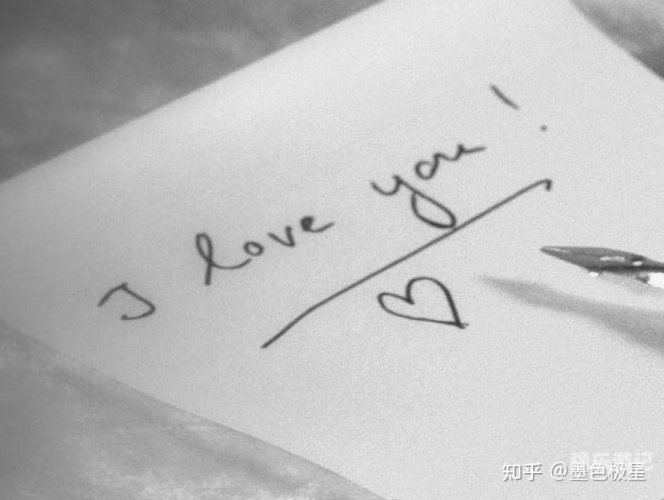 I love you!
知乎 @墨色极星